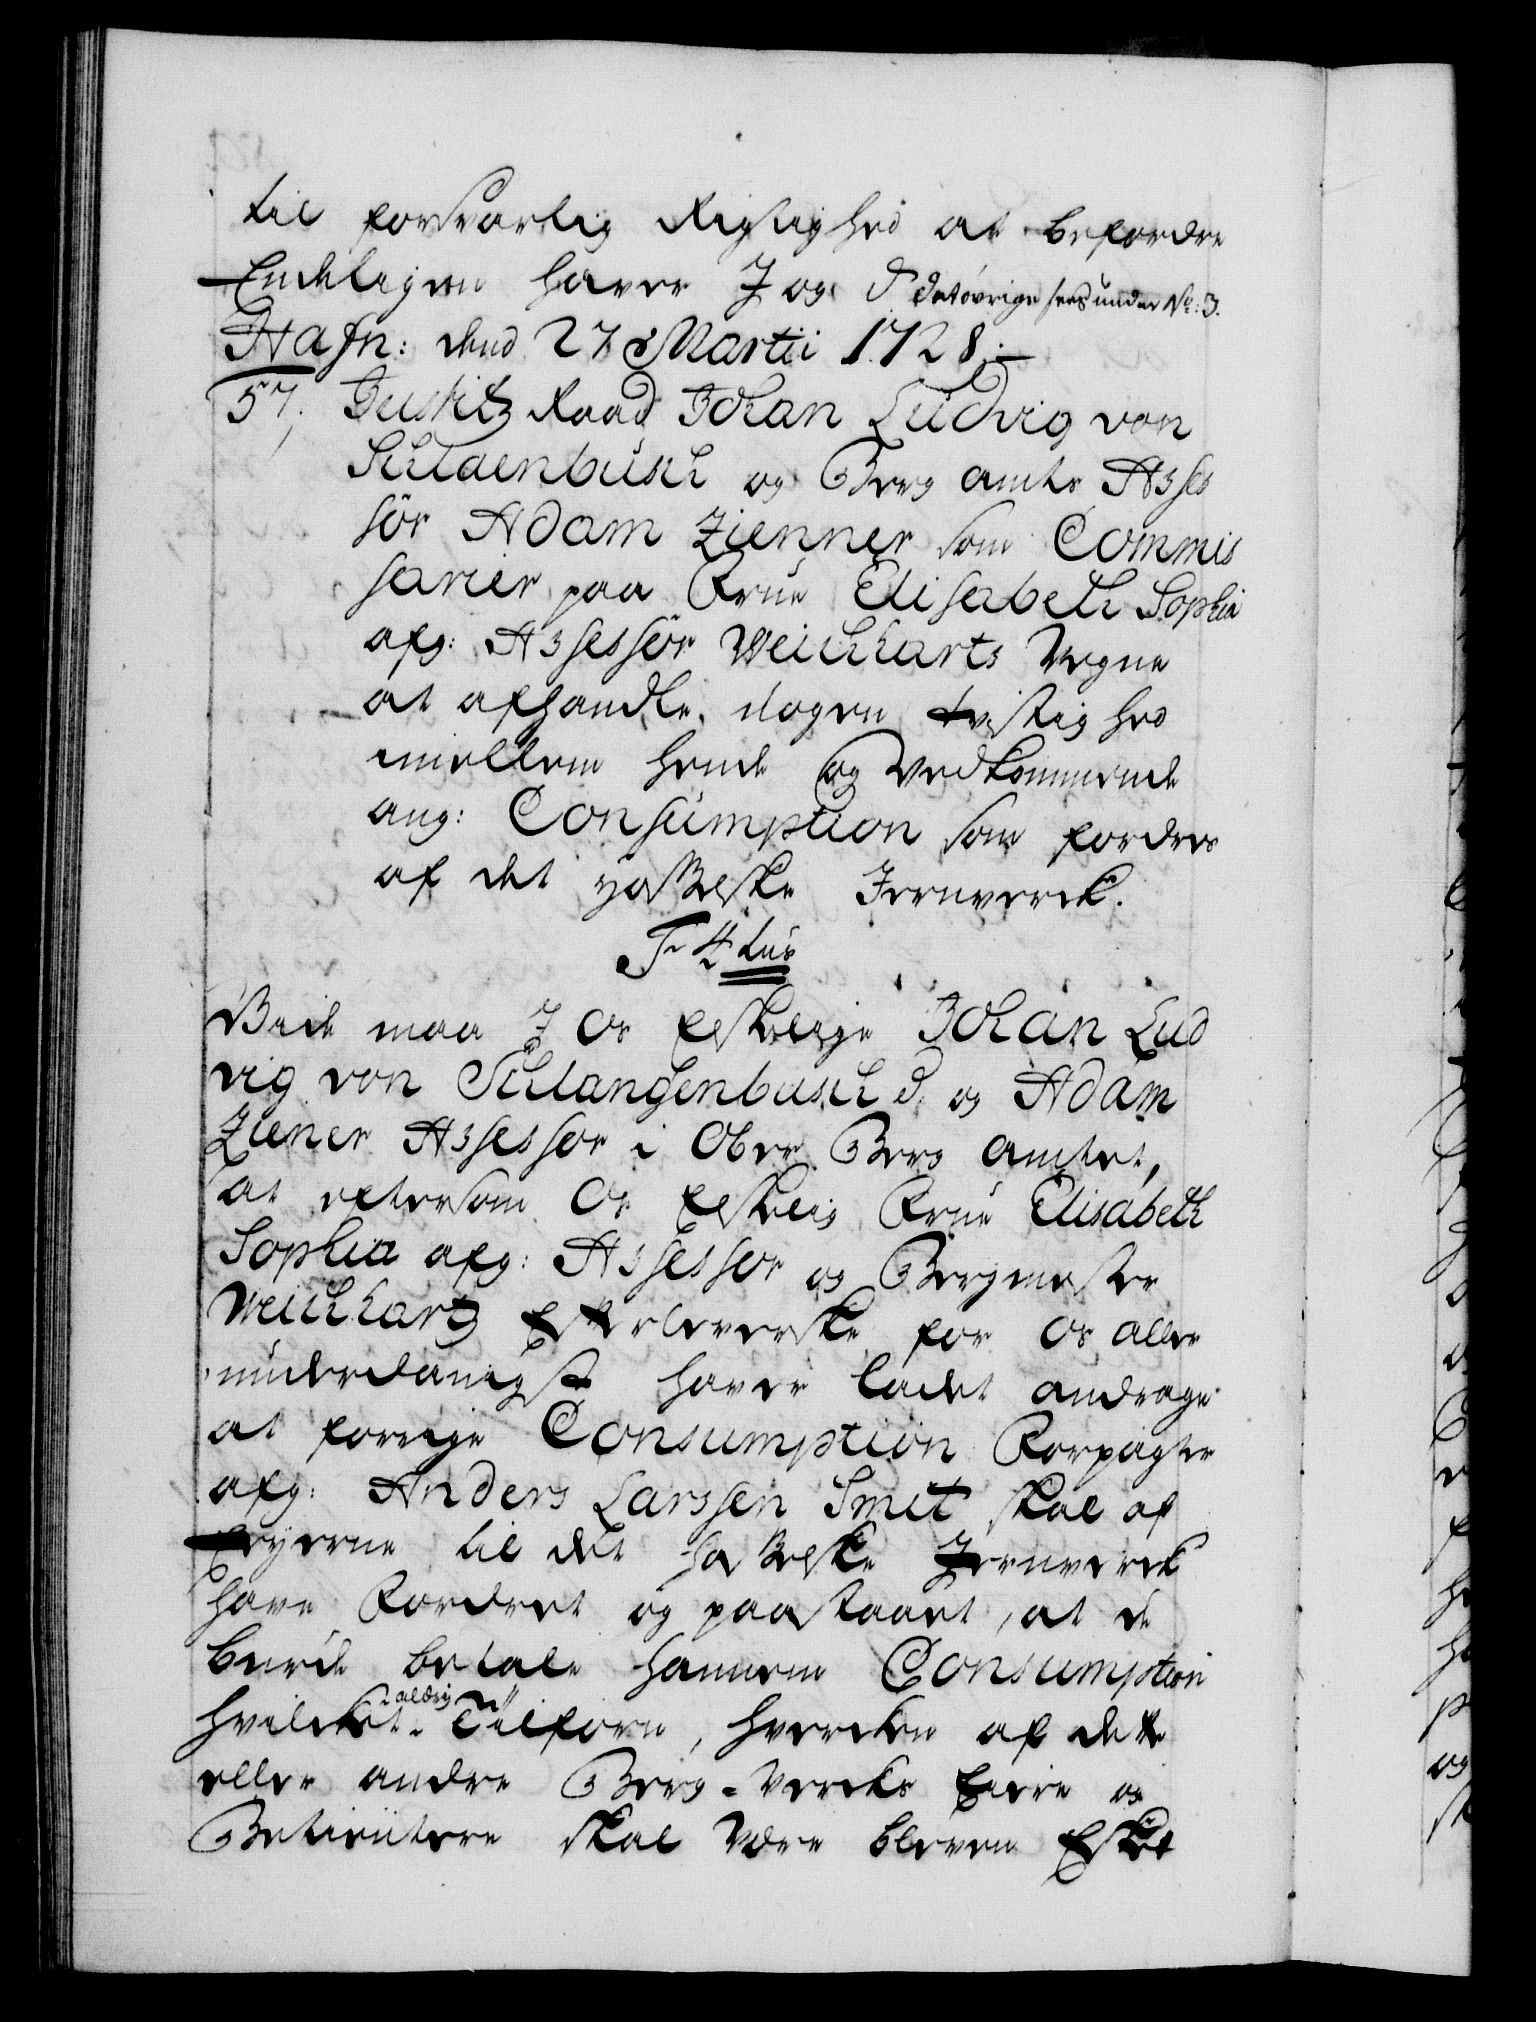 til forsvarlig Rigtighed at befordre
Endeligen haver I og d detøvrige sees under No: 3.
Hafn: dend 27 Martii 1728.
57. Justitz Raad Johan Ludvig von
Schlaenbusch og Berg amts Asses
sor Adam Zienner som Commis
sarier paa Frue Elisabeth Sophia
afg: Assessor Weichharts Vegne
at afhandle nogen tvistighed
imellem hende og Vedkommende
ang: Consumption som fordres
af det Hasselske Jernverck.
F 4 tus
Viide maa I Os Elskelige Johan Lud
vig von Schlangenbusch d. og Adam
Ziener Assessor i Ober Berg Amtet,
at eftersom Os Elskelig Frue Elisabeth
Sophia afg: Assessor og Bergmester
Weichhartz Efterleverske for Os aller
underdanigst haver ladet andrage
at forrige Consumption Forpagter
afg: Anders Larssen Smit skal af
Eyerne til det Hasselske Jernverck
have fordret og paastaaet, at de
burde betale hannem Consumption
hvilcket aldrig tilforn, hvercken af dette
eller andre Berg-Vercks Eiere og
Betientere skal være bleven Esket